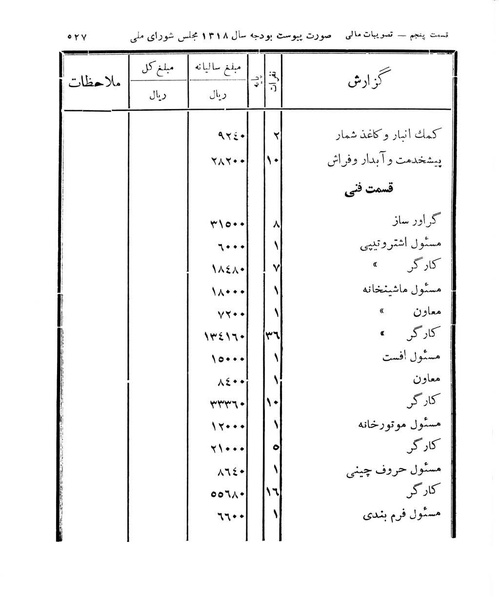 قسمت پنجم — تصویبات مالی صورت پیوست بودجه سال ۱۳۱۸ مجلس شورای ملی ۵۲۷
گزارش نفرات پایه مبلغ سالیانه ریال مبلغ کل ریال ملاحظات
کمك انبار و کاغذ شمار ۲ ۹۲٤۰
پیشخدمت و آبدار و فراش ۱۰ ۲۸۲۰۰
قسمت فنی
گراور ساز ۸ ۳۱۵۰۰
مسئول اشتروتیپی ۱ ۶۰۰۰
کارگر » ۷ ۱۸٤۸۰
مسئول ماشینخانه ۱ ۱۸۰۰۰
معاون » ۱ ۷۲۰۰
کارگر » ۳۶ ۱۳٤۱۶۰
مسئول افست ۱ ۱۵۰۰۰
معاون ۱ ۸٤۰۰
کارگر ۱۰ ۳۳۳۶۰
مسئول موتورخانه ۱ ۱۲۰۰۰
کارگر ۵ ۲۱۰۰۰
مسئول حروف چینی ۱ ۸۶٤۰
کارگر ۱۶ ۵۵۶۸۰
مسئول فرم بندی ۱ ۶۶۰۰